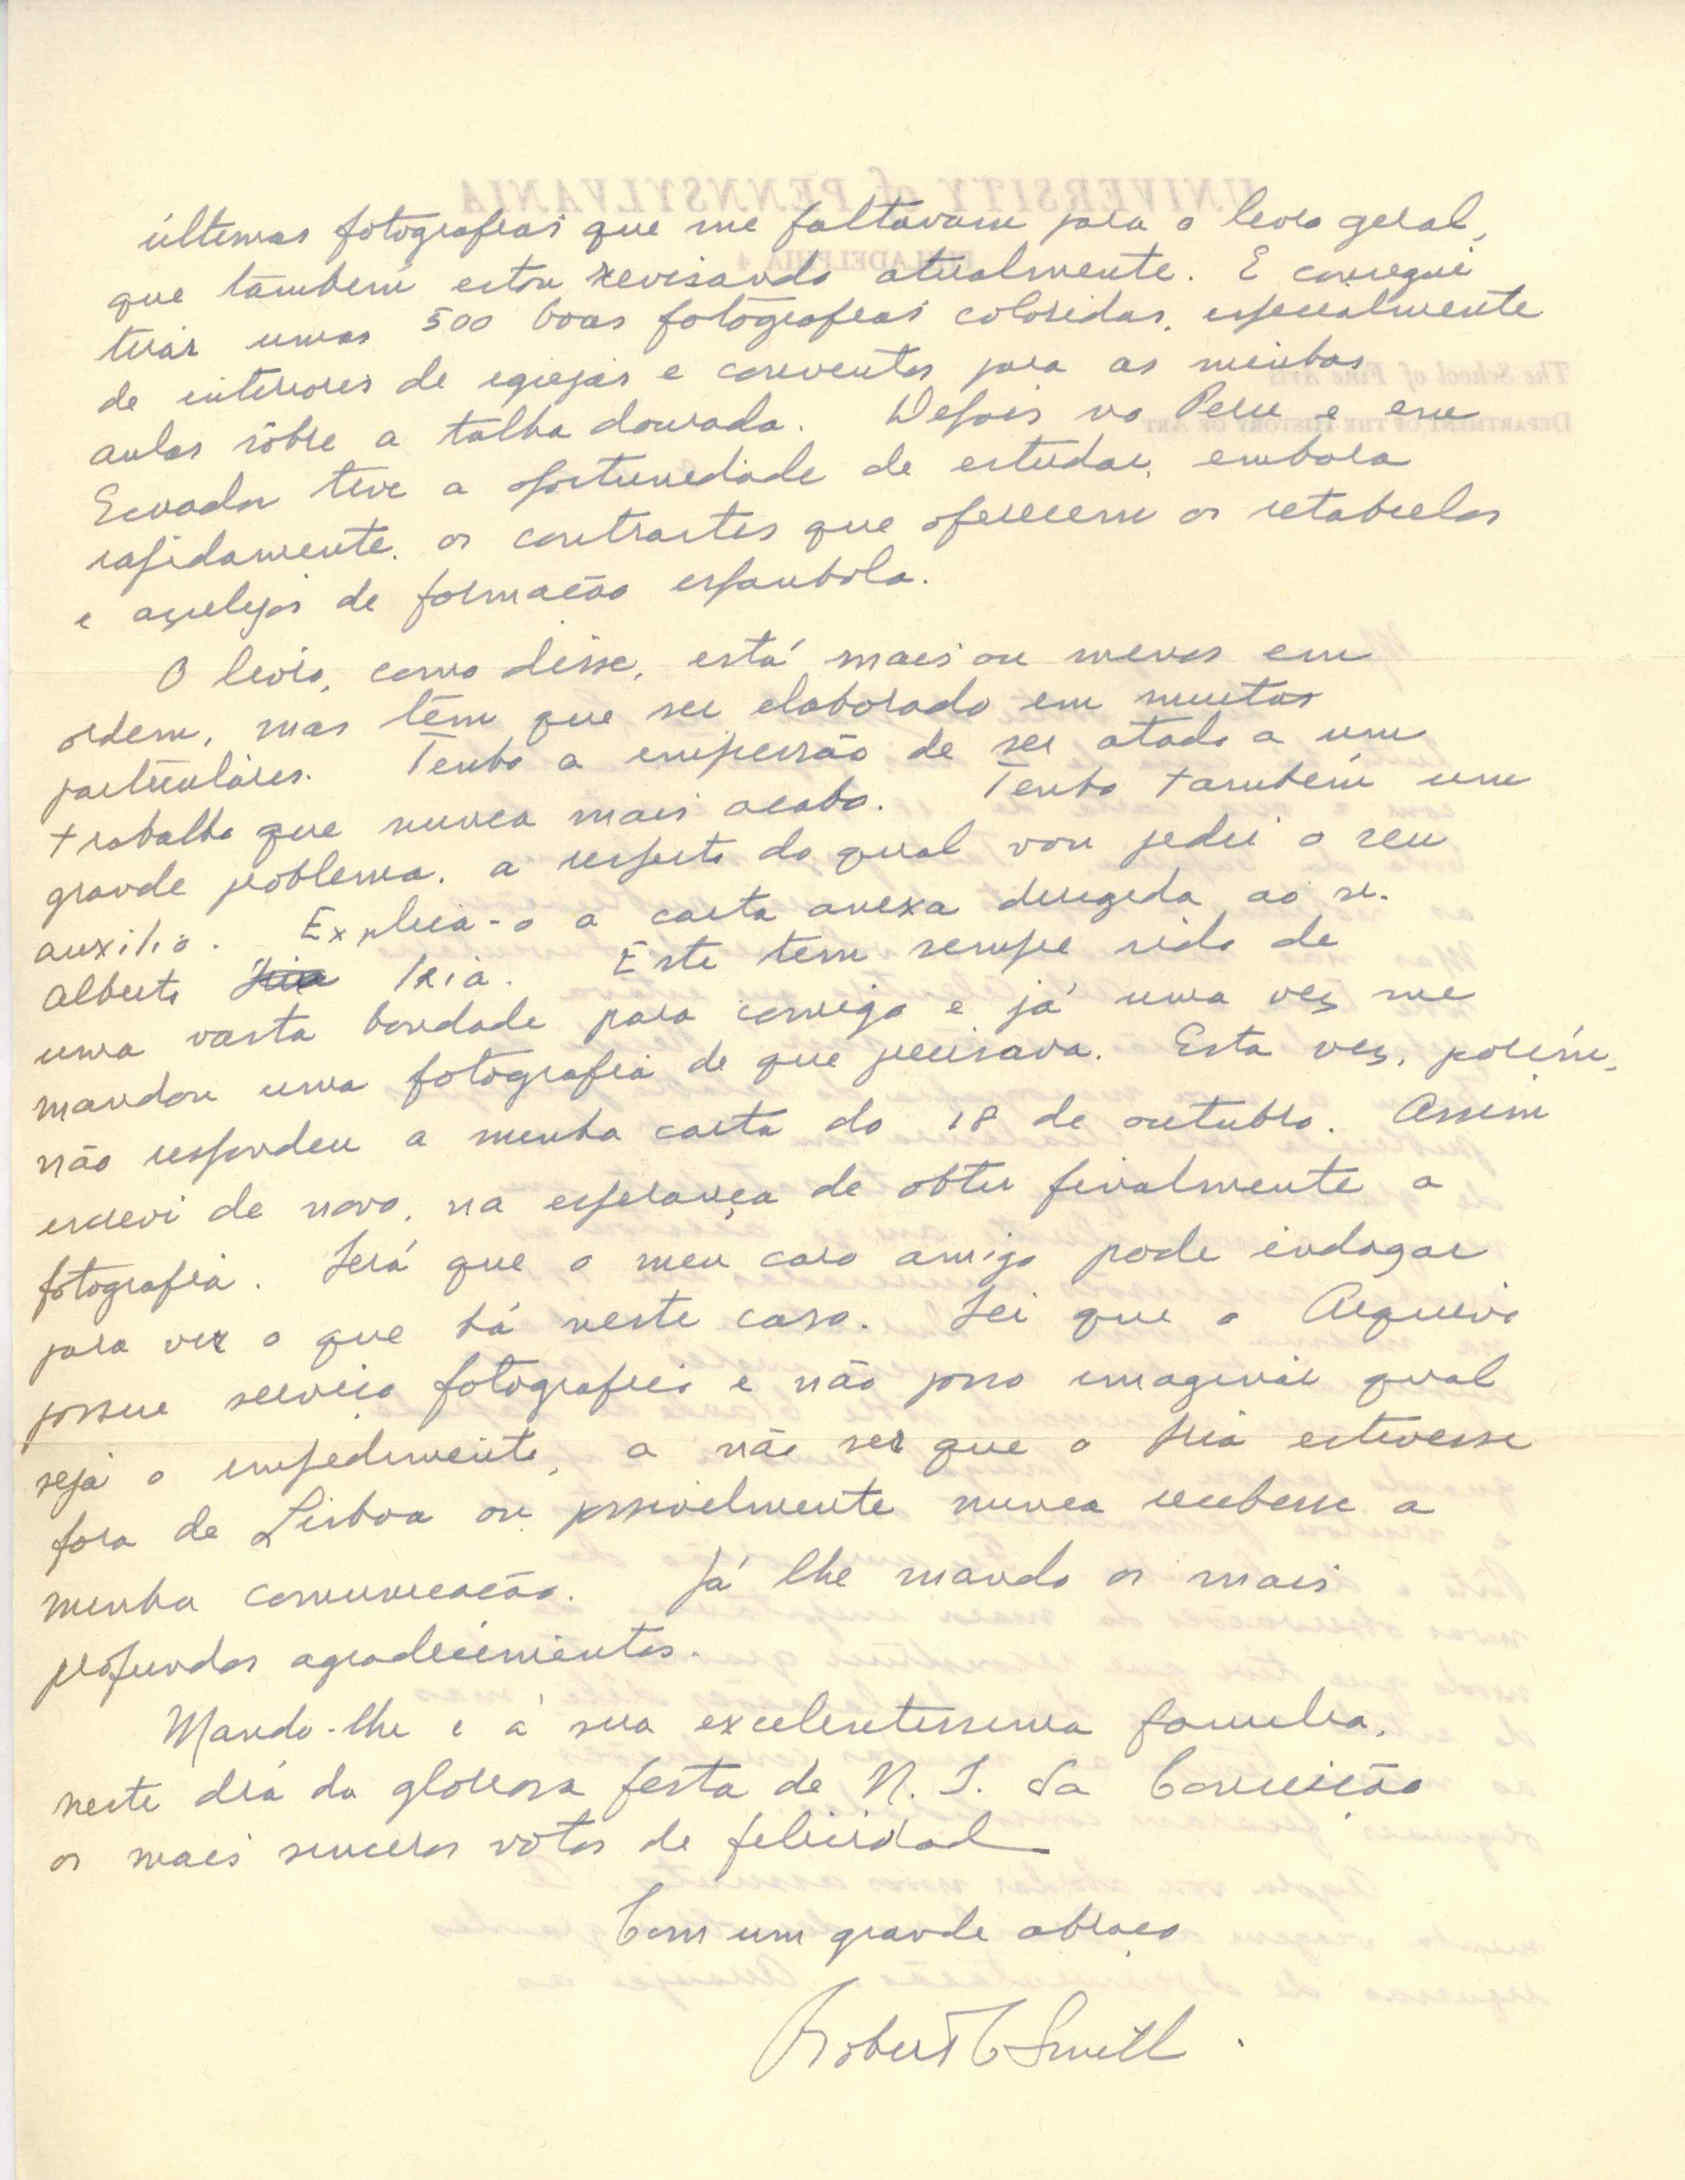 últimas fotografias que me faltavam para o livro geral,
que também estou revisando atualmente. E consegui
tirar umas 500 boas fotografias coloridas, especialmente
de interiores de igrejas e conventos para as minhas
aulas sôbre a talha dourada. Depois no Peru e em
Ecuador tive a oportunidade de estudar, embora
rapidamente, os contrastes que oferecem os retabulos
e azulejos de formação espanhola.
O livro, como disse, está mais ou menos em
ordem, mas têm que ser elaborado em muitos
particulares. Tenho a impressão de ser atado a um
trabalho que nunca mais acabo. Tenho também um
grande problema, a respeito do qual vou pedir o seu
auxilio. Explica-o a carta anexa dirigida ao sr.
Alberto Iria Iria. Este tem sempre sido de
uma vasta bondade para comigo e já uma vez me
mandou uma fotografia de que precisava. Esta vez, porém,
não respondeu a minha carta do 18 de outubro. Assim
escrevi de novo, na esperança de obter finalmente a
fotografia. Será que o meu caro amigo pode indagar
para ver o que há neste caso. Sei que o Arquivo
possue serviço fotografico e não posso imaginar qual
seja o impedimento, a não ser que o Iria estivesse
fora de Lisboa ou possivelmente nunca recebesse a
minha comunicação. Já lhe mando os mais
profundos agradecimentos.
Mando-lhe e á sua excelentissima familia,
neste dia da gloriosa festa de N. S. da Conceição
os mais sinceros votos de felicidad
Com um grande abraço
Robert C Smith.
UNIVERSITY of PENNSYLVANIA
PHILADELPHIA 4
The School of Fine Arts
DEPARTMENT OF THE HISTORY OF ART